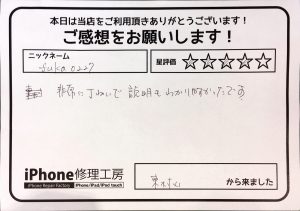 本日は当店をご利用頂きありがとうございます!
ご感想をお願いします!
ニックネーム
fuka0227
星評価 ☆☆☆☆☆
非常に丁ねいで説明もわかりやすかったです
iPhone修理工房
iPhone Repair Factory
iPhone/iPad/iPod touch
から来ました